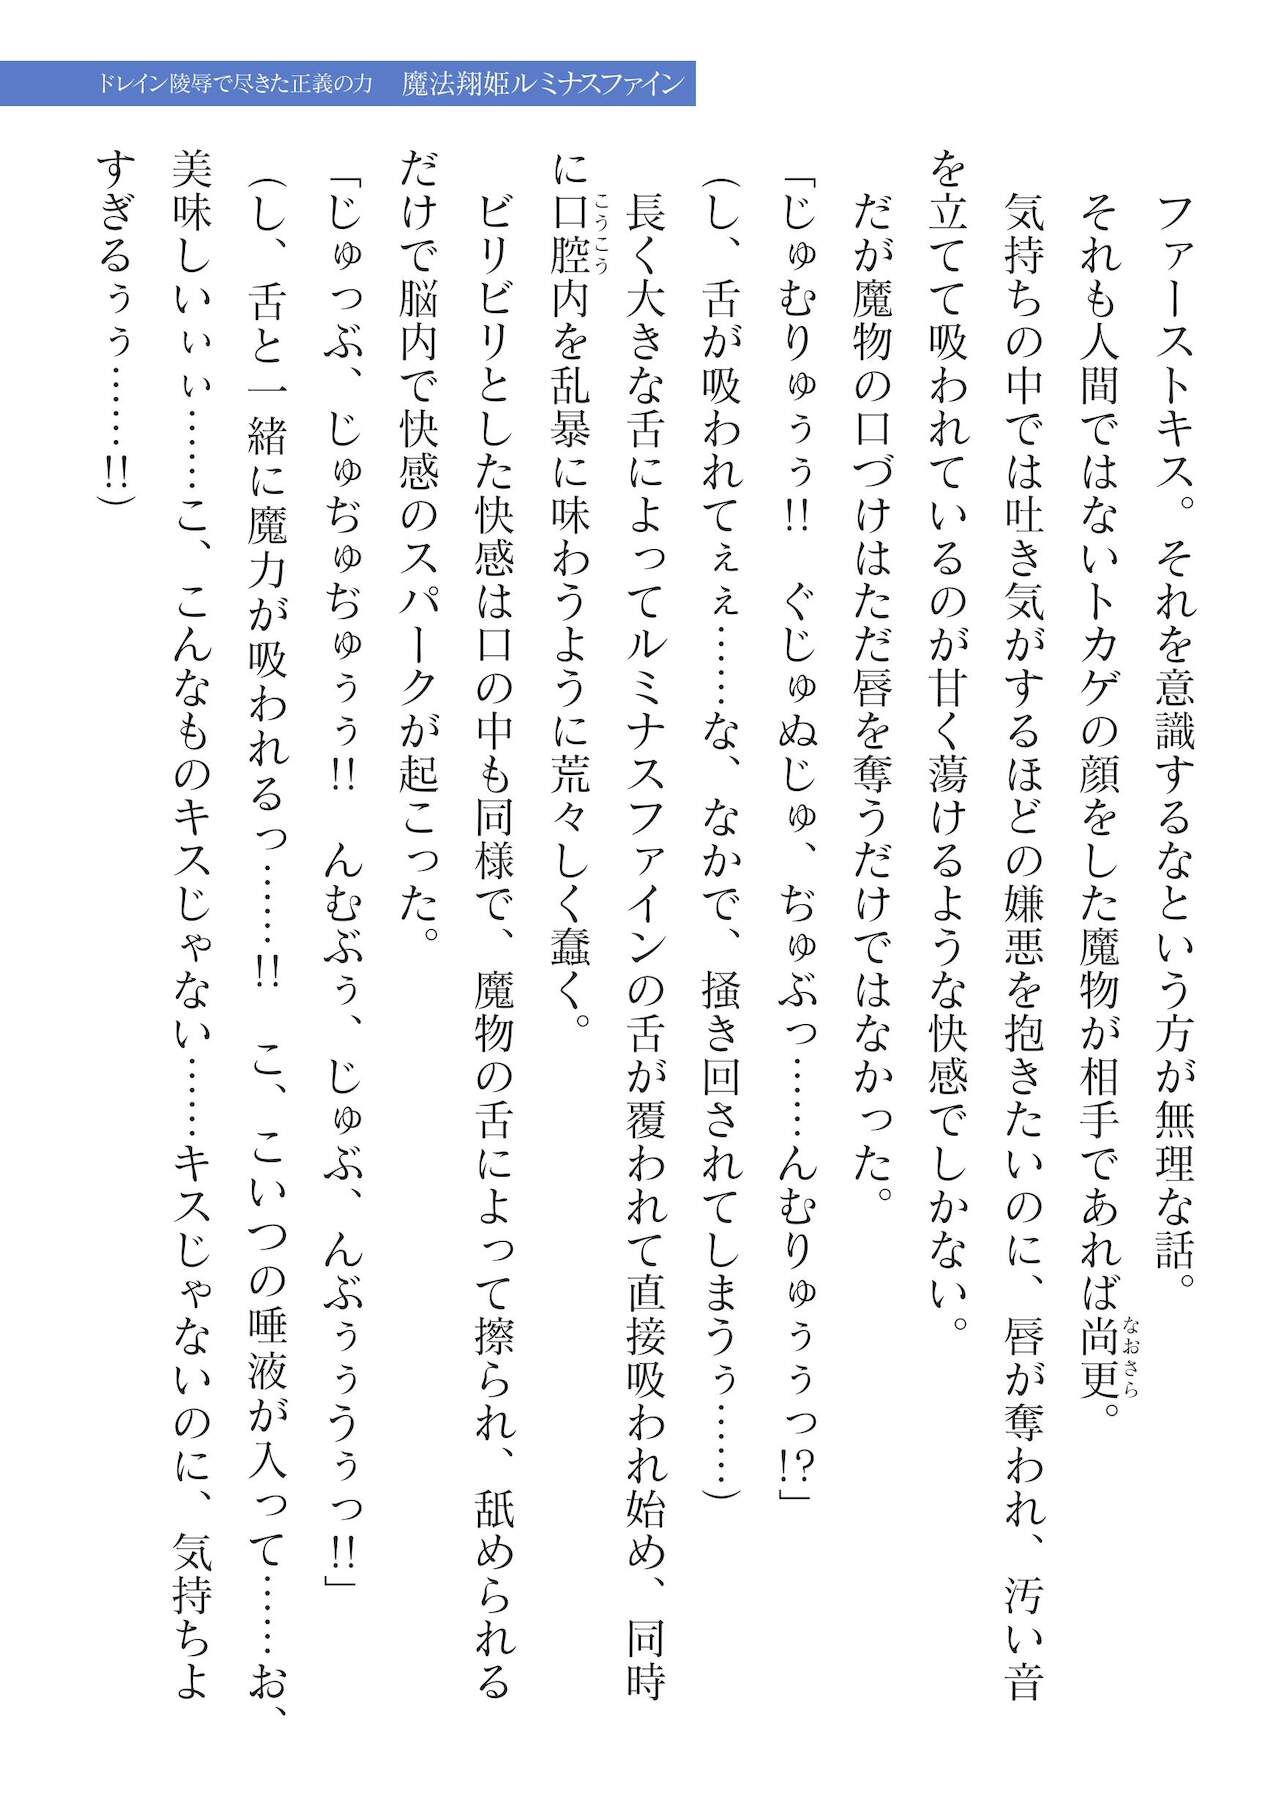 ドレイン陵辱で尽きた正義の力　魔法翔姫ルミナスファイン
　ファーストキス。それを意識するなという方が無理な話。
　それも人間ではないトカゲの顔をした魔物が相手であれば尚更。
なおさら
　気持ちの中では吐き気がするほどの嫌悪を抱きたいのに、唇が奪われ、汚い音
を立てて吸われているのが甘く蕩けるような快感でしかない。
　だが魔物の口づけはただ唇を奪うだけではなかった。
「じゅむりゅぅぅ!!　ぐじゅぬじゅ、ぢゅぶっ……んむりゅぅぅっ!?」
(し、舌が吸われてぇぇ……な、なかで、掻き回されてしまうぅ……)
　長く大きな舌によってルミナスファインの舌が覆われて直接吸われ始め、同時
に口腔内を乱暴に味わうように荒々しく蠢く。
こうこう
　ビリビリとした快感は口の中も同様で、魔物の舌によって擦られ、舐められる
だけで脳内で快感のスパークが起こった。
「じゅっぶ、じゅぢゅぢゅぅぅ!!　んむぶぅ、じゅぶ、んぶぅぅうぅっ!!」
(し、舌と一緒に魔力が吸われるっ……!!　こ、こいつの唾液が入って……お、
美味しいぃぃ……こ、こんなものキスじゃない……キスじゃないのに、気持ちよ
すぎるぅぅ……!!)